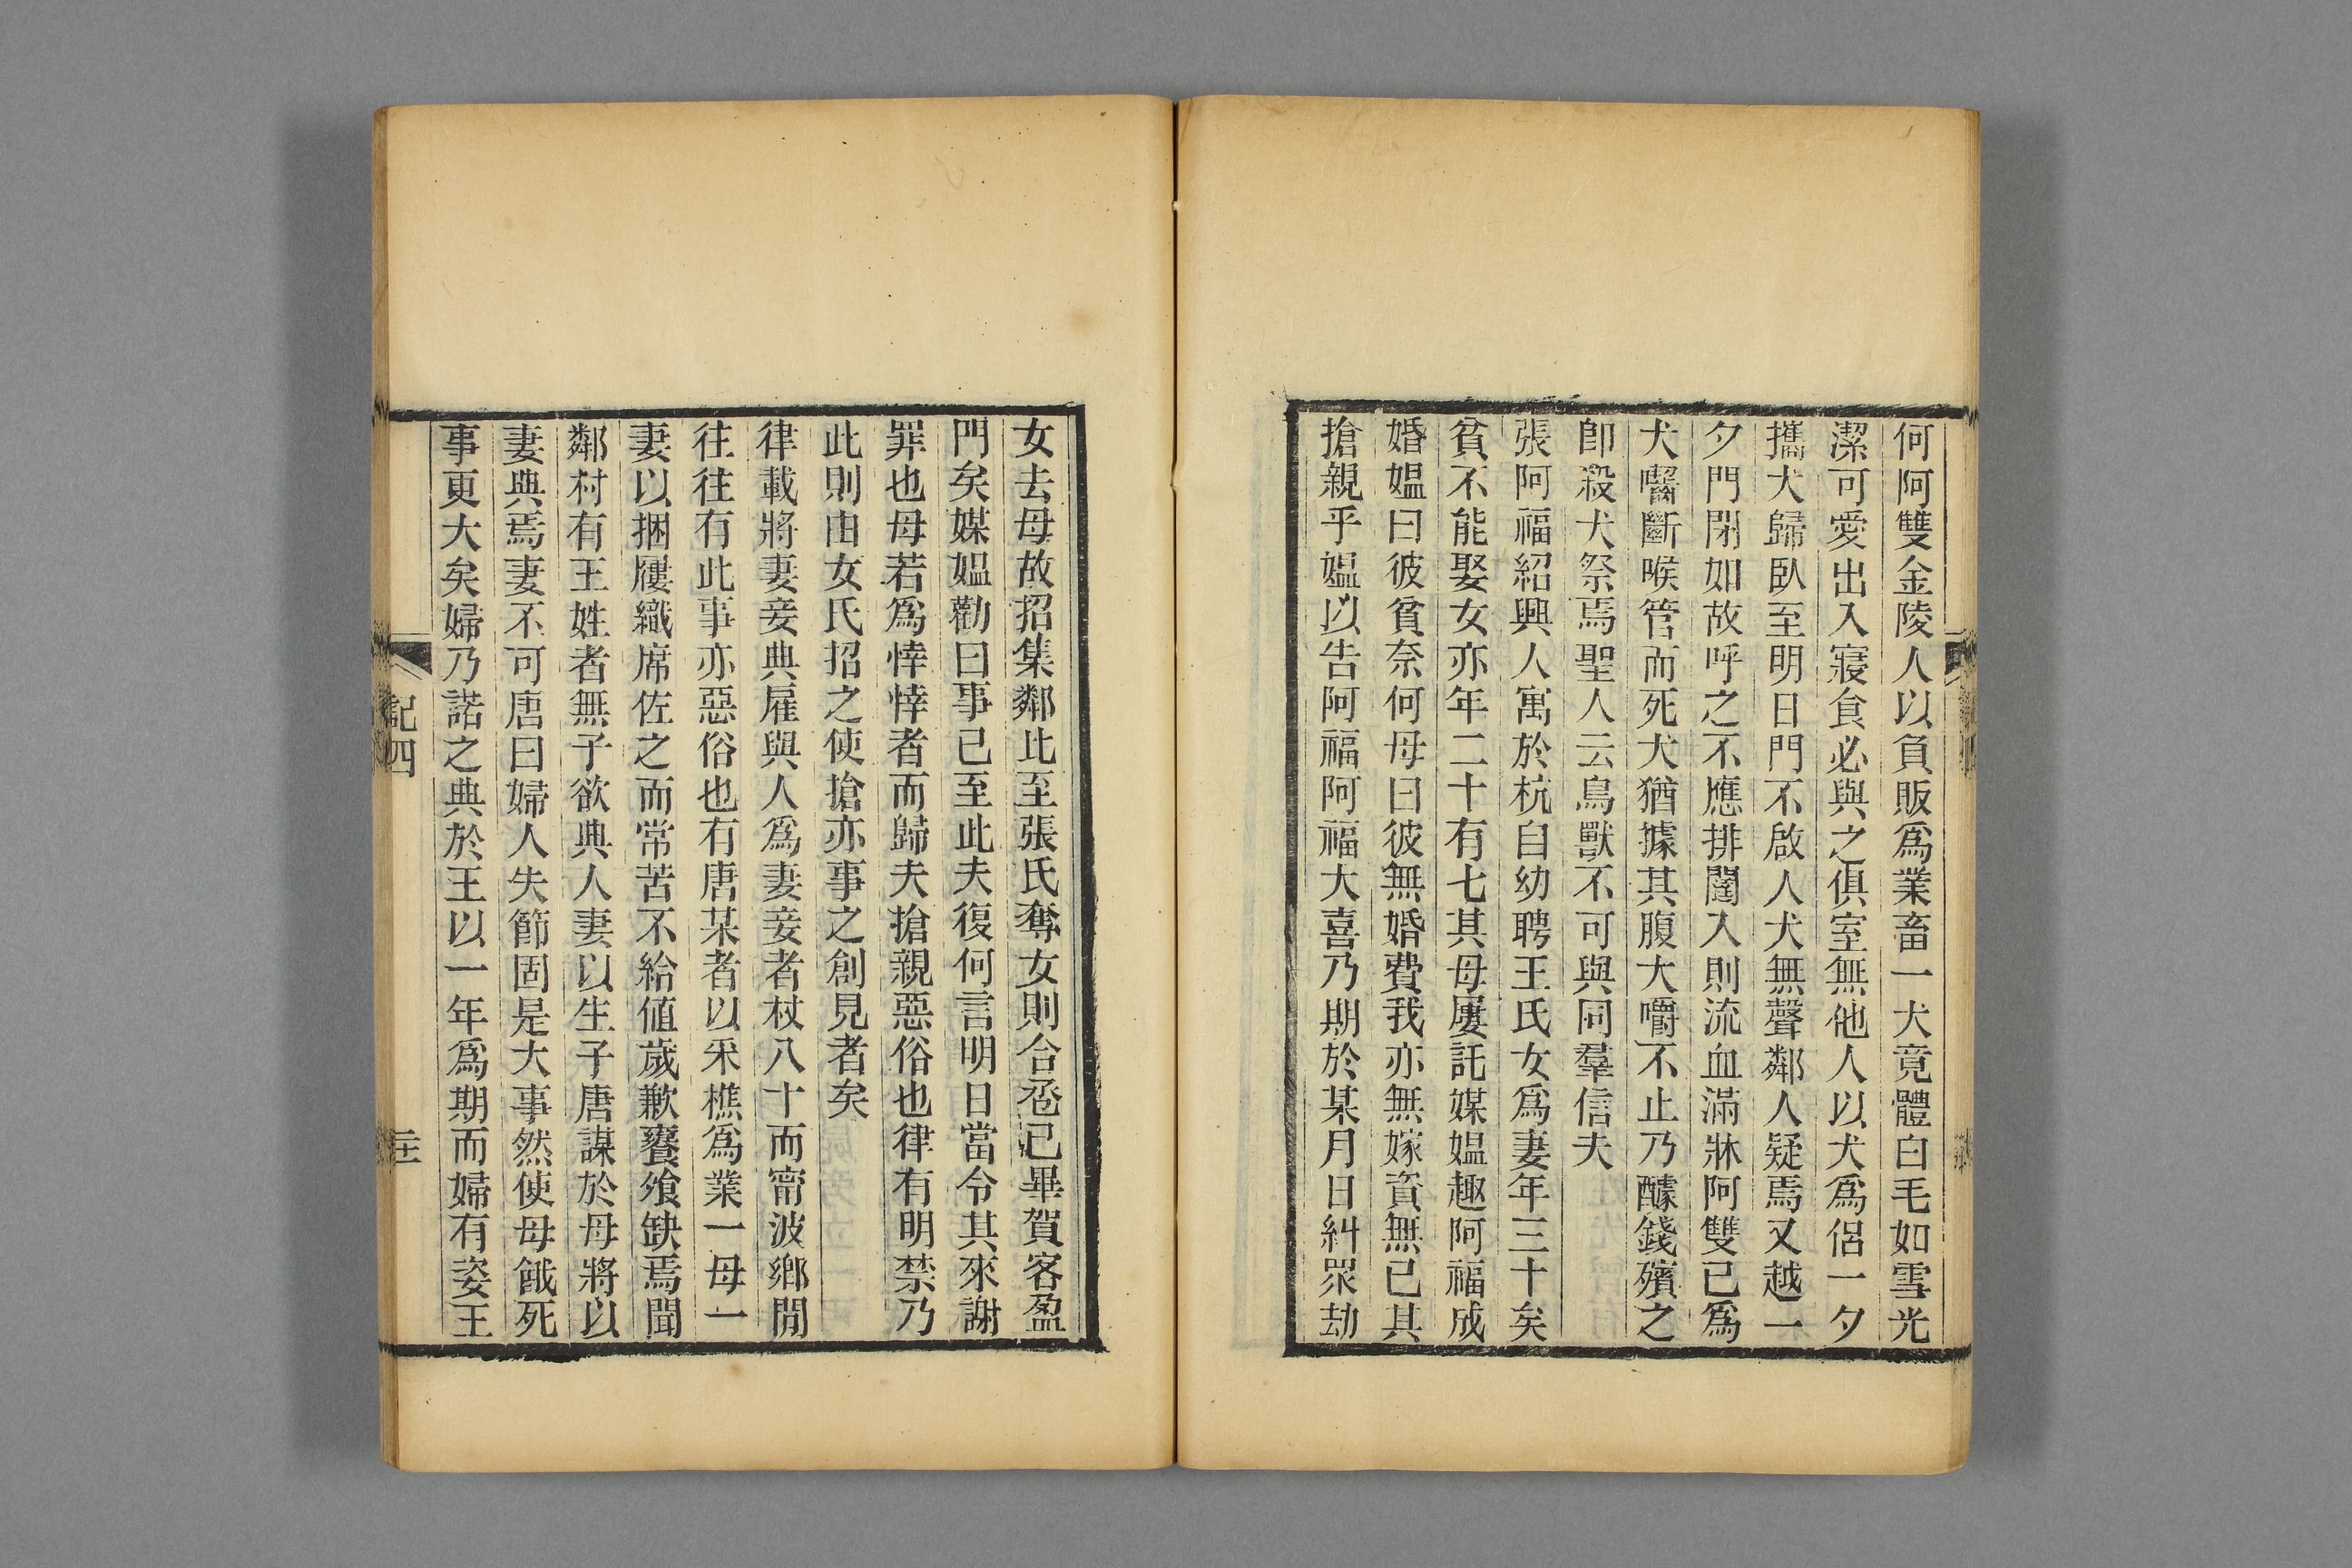 何阿雙金陵人以負販爲業畜一犬竟體白毛如雪光
潔可愛出入寢食必與之俱室無他人以犬爲侶一夕
攜犬歸臥至明日門不啟人犬無聲鄰人疑焉又越一
夕門閉如故呼之不應排闥入則流血滿牀阿雙已爲
犬齧斷喉管而死犬猶據其腹大嚼不止乃醵錢殯之
卽殺犬祭焉聖人云鳥獸不可與同羣信夫
張阿福紹興人寓於杭自幼聘王氏女爲妻年三十矣
貧不能娶女亦年二十有七其母屢託媒媼趣阿福成
婚媼曰彼貧奈何母曰彼無婚費我亦無嫁資無已其
搶親乎媼以告阿福阿福大喜乃期於某月日糾眾劫
女去母故招集鄰比至張氏奪女則合巹已畢賀客盈
門矣媒媼勸曰事已至此夫復何言明日當令其來謝
罪也母若爲悻悻者而歸夫搶親惡俗也律有明禁乃
此則由女氏招之使搶亦事之創見者矣
律載將妻妾典雇與人爲妻妾者杖八十而甯波鄉閒
往往有此事亦惡俗也有唐某者以采樵爲業一母一
妻以捆屨織席佐之而常苦不給值歲歉饔飧缺焉聞
鄰村有王姓者無子欲典人妻以生子唐謀於母將以
妻典焉妻不可唐曰婦人失節固是大事然使母餓死
事更大矣婦乃諾之典於王以一年爲期而婦有姿王
記四